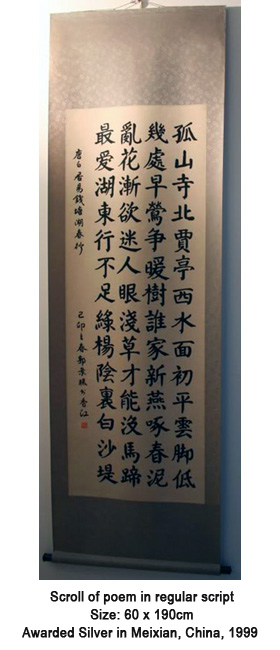 孤山寺北賈亭西水面初平雲脚低
幾處早鶯争暖樹誰家新燕啄春泥
亂花漸欲迷人眼淺草才能沒馬蹄
最爱湖東行不足綠楊陰裏白沙堤
唐白居易錢塘湖春行 己卯之春鄭景 香江
Scroll of poem in regular script
Size: 60 x 190cm
Awarded Silver in Meixian, China, 1999